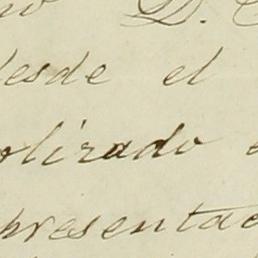 D.
desde el
olizado
presentad